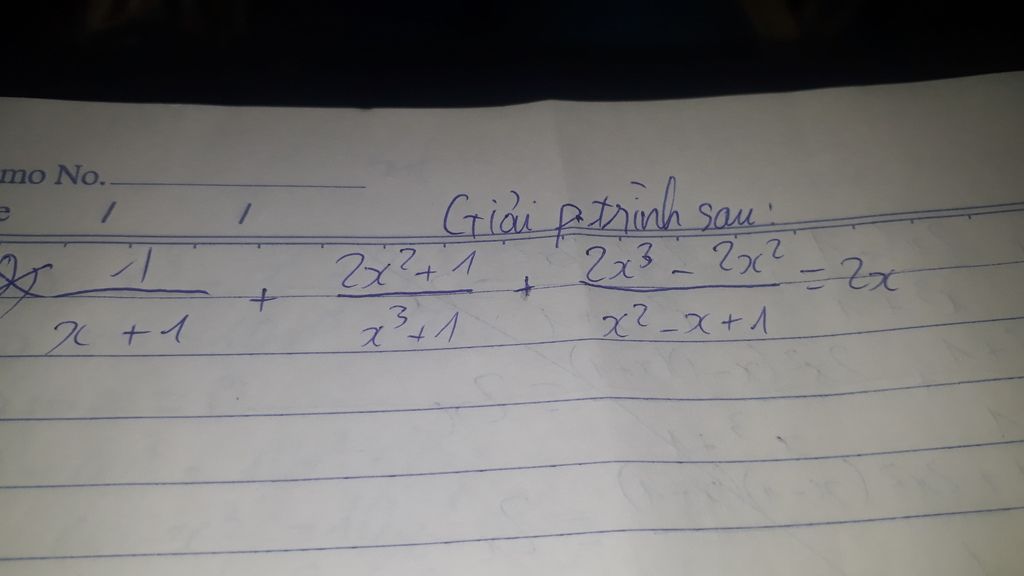 mo No.
e / /
Giải p.trình sau:
-1/(x + 1) + (2x² + 1)/(x³ + 1) + (2x³ - 2x²)/(x² - x + 1) = 2x